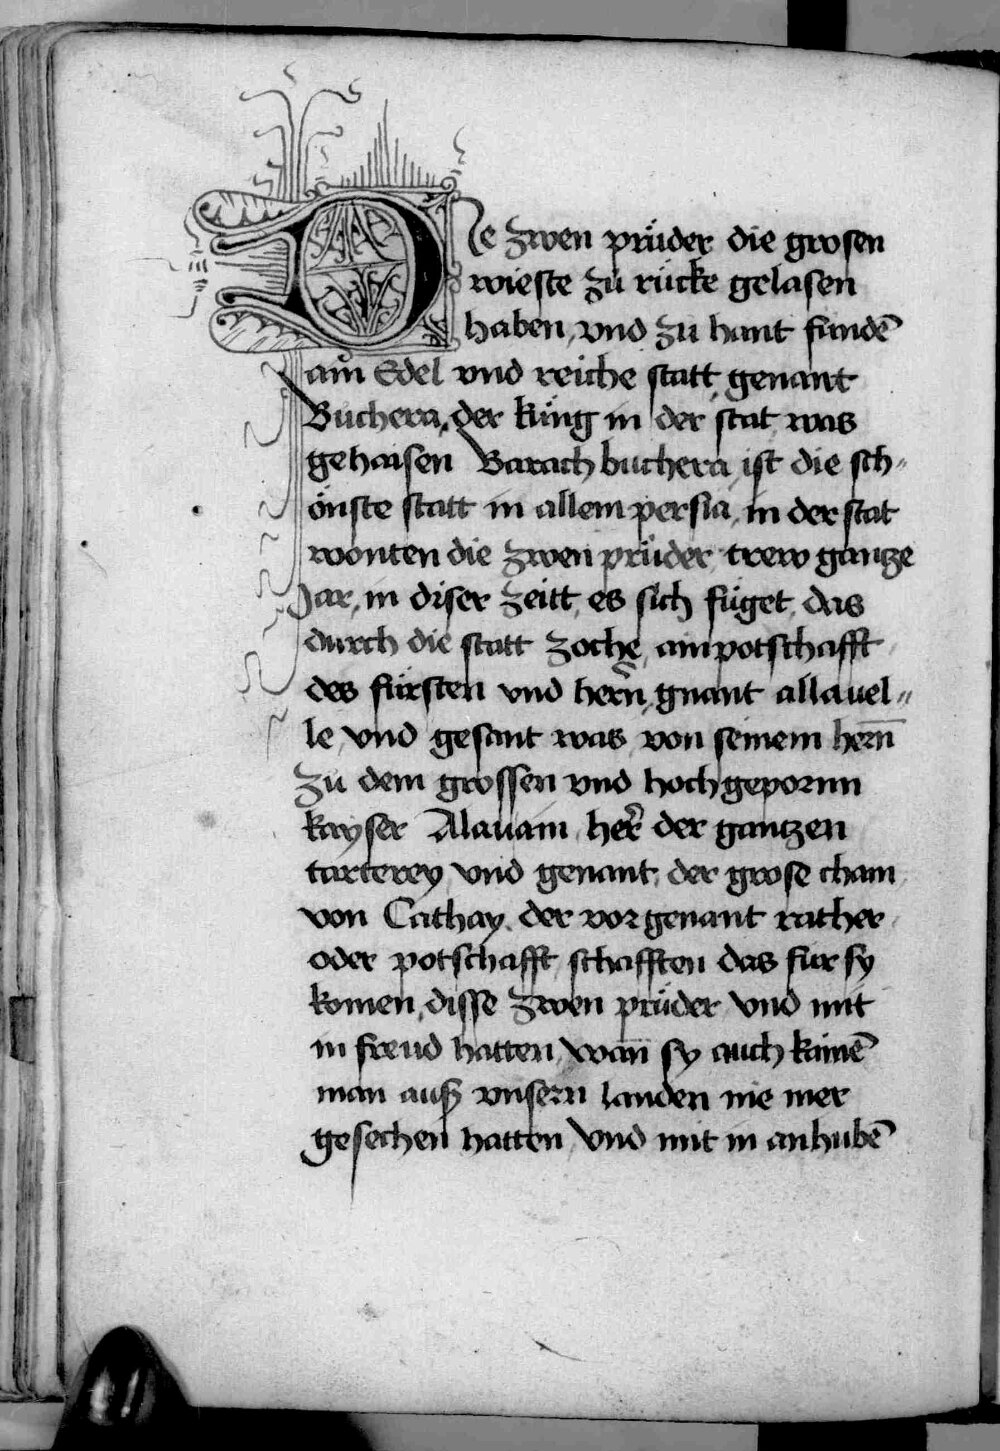 DJe zwen prüder die grosen
wieste zü rücke gelasen
haben, vnd zu hant fundē
ain Edel vnd reiche statt, genant
Buchera, der küng in der stat was
gehaisen Barach buchera, ist die sch„
önste statt in allem persia, in der stat
wonten die zwen prüder, trew gantze
Jar, in diser zeitt, es sich füget, das
durch die statt zoche, ain potschafft
des fürsten vnd hern̄, gnant allauel„
le, vnd gesant was, von seinem hern̄
zü dem grossen vnd hochgepornn
kayser Alauam, her̄ der gantzen
tarterey, vnd genant, der grose cham
von Cathay. der vorgenant rather
oder potschafft, schafften das fur sy
komen, disse zwen prüder, vnd mit
in freud hatten, wan̄ sy auch kainē
man auß vnsern landen nie mer
gesechen hatten, vnd mit in anhubē